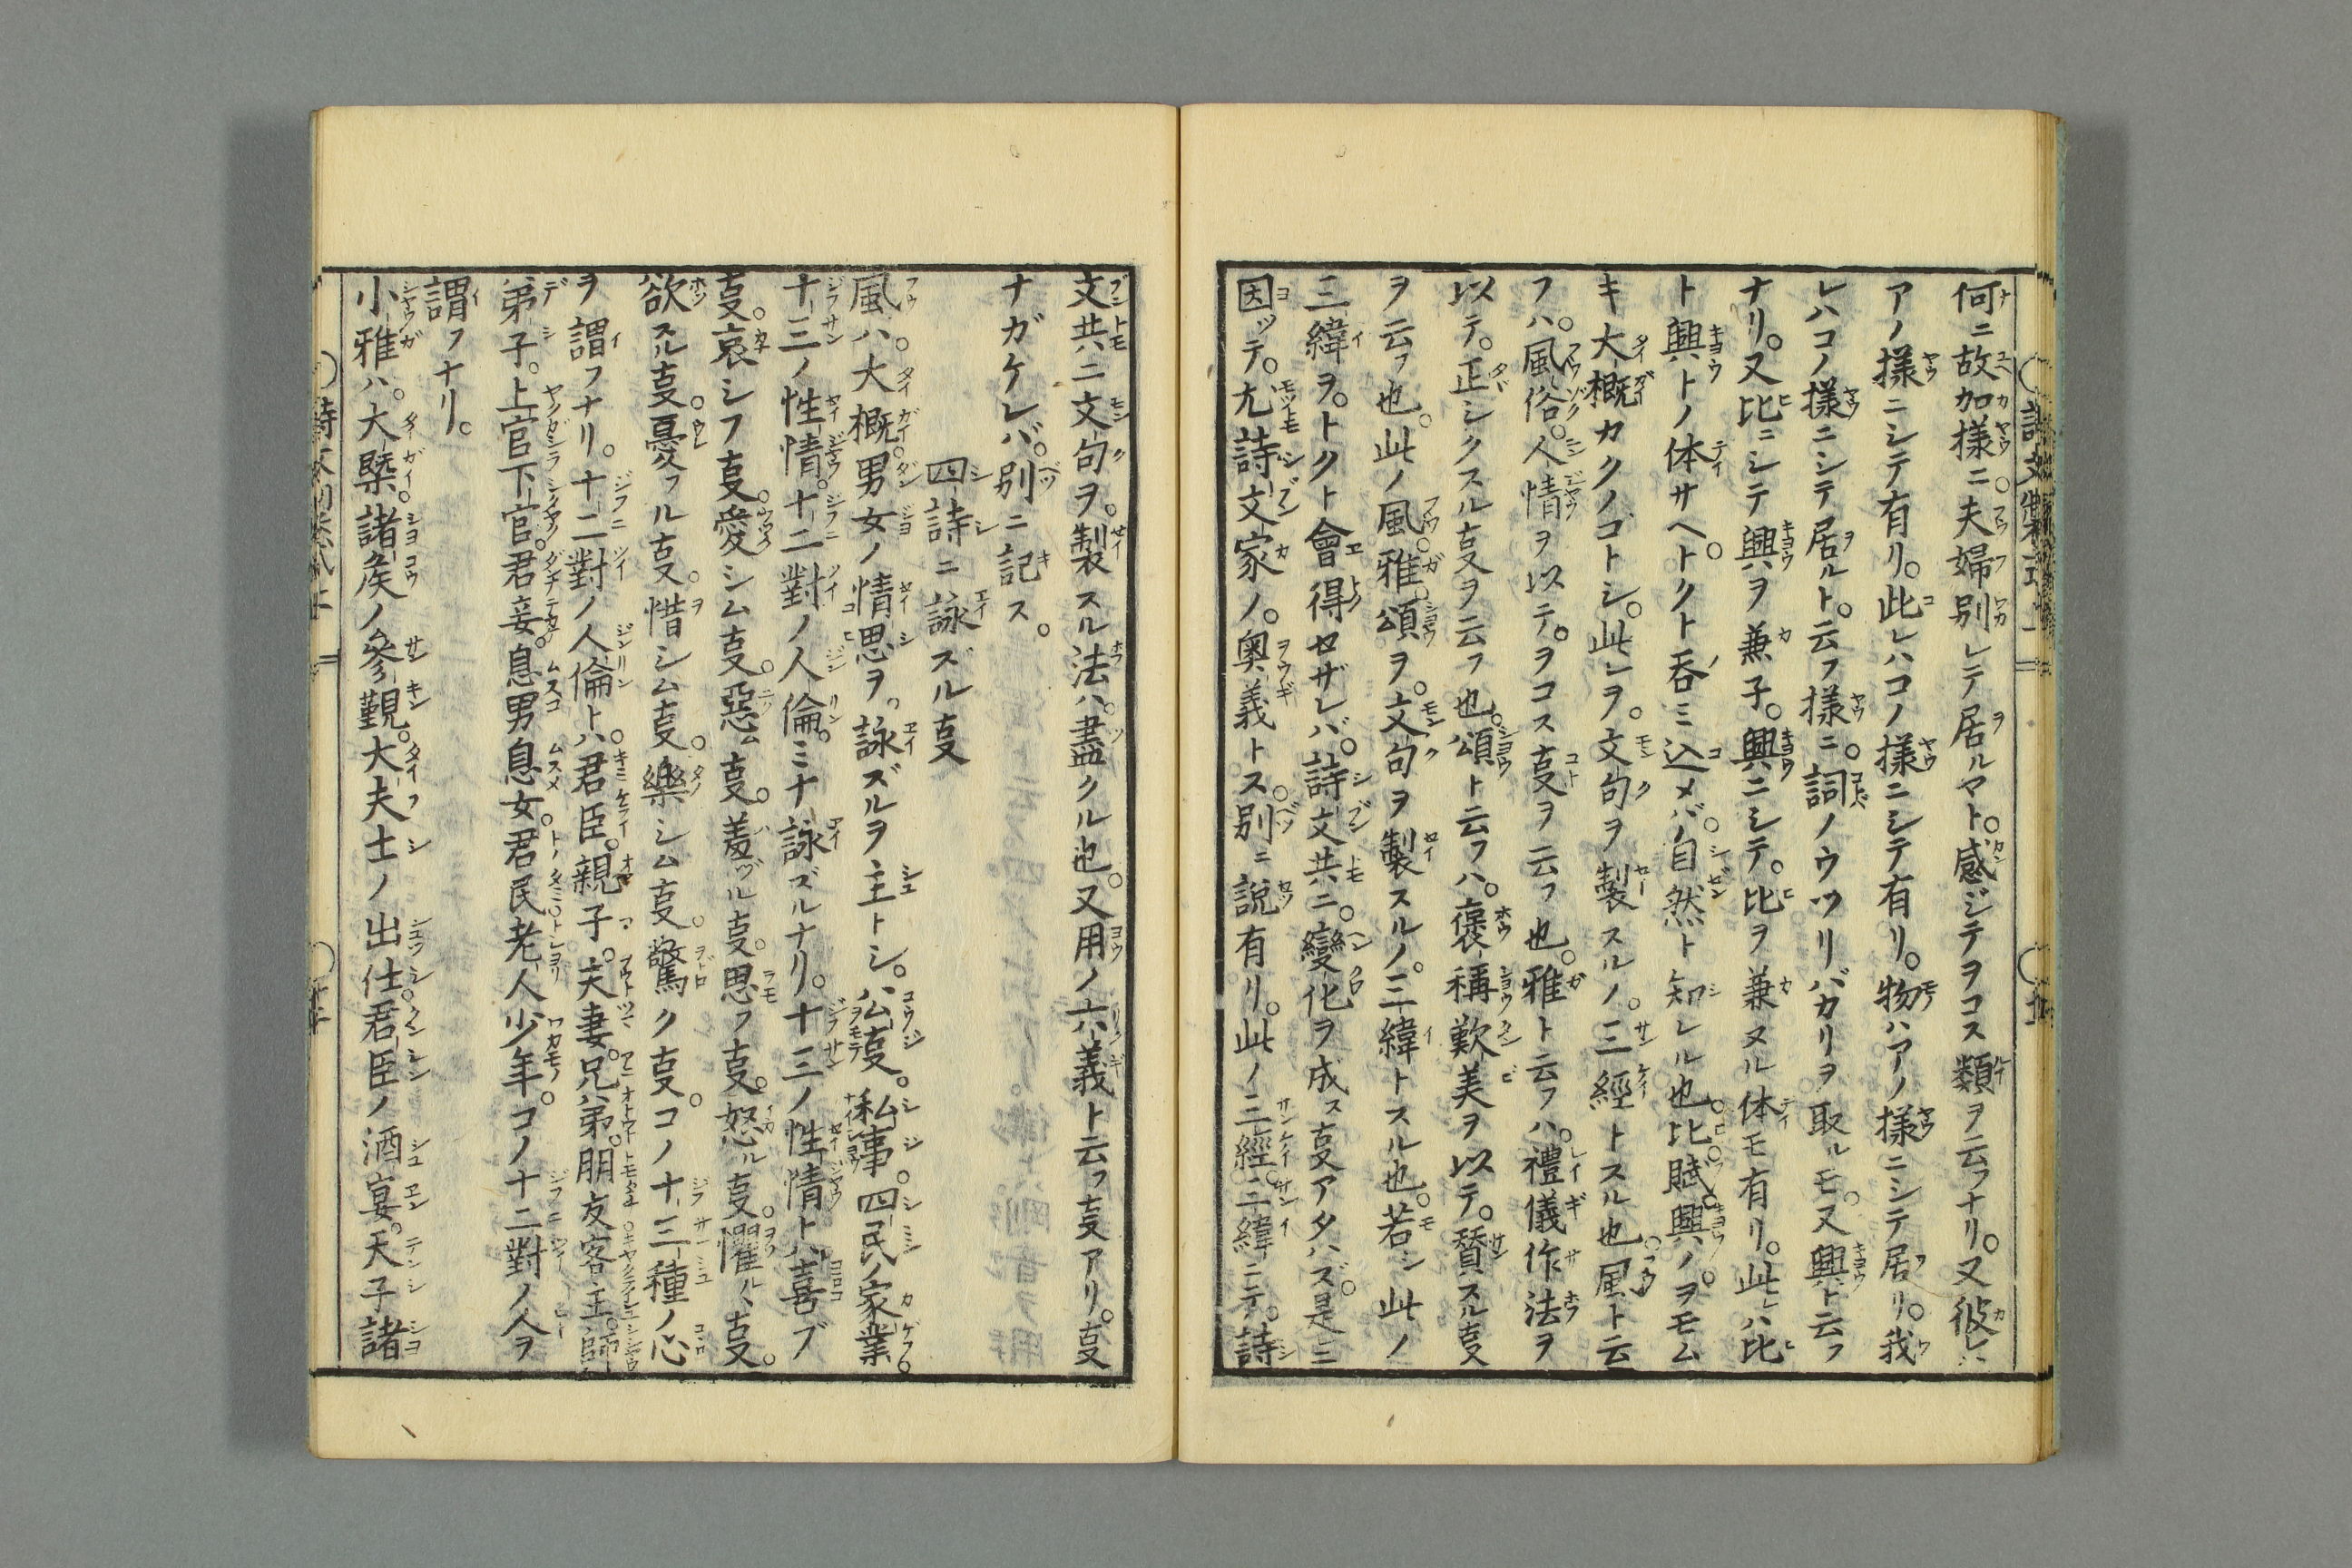 何ニ故加様ニ夫婦別レテ居ルヤト。感ジテヲコス類ヲ云フナリ。又彼レハ
アノ様ニシテ有リ。此レハコノ様ニシテ有リ。物ハアノ様ニシテ居リ。我
レハコノ様ニシテ居ルト。云フ様ニ。詞ノウツリバカリヲ取ルモ。又興ト云フ
ナリ。又比ニシテ興ヲ兼子。興ニシテ。比ヲ兼ヌル体モ有リ。此レハ比
ト興トノ体サヘ。トクト呑ミ込メバ。自然ト知レル也。比賦興ノ。ヲモム
キ大概カクノゴトシ。此レヲ。文句ヲ製スルノ。三經トスル也。風ト云
フハ。風俗。人情ヲ以テ。ヲコス叓ヲ云フ也。雅ト云フハ。禮儀作法ヲ
以テ。正シクスル叓ヲ云フ也。頌ト云フハ。褒稱歎美ヲ以テ。賛スル叓
ヲ云フ也。此ノ風雅頌ヲ。文句ヲ製スルノ。三緯トスル也。若シ此ノ
三緯ヲ。トクト會得セザレバ。詩文共ニ。變化ヲ成ス叓アタハズ。是ニ
因ッテ。尤詩文家ノ。奥義トス。別ニ説有リ。此ノ三經。三緯ニテ。詩
文共ニ文句ヲ。製スル法ハ。盡クル也。又用ノ六義ト云フ叓アリ。叓
ナガケレバ。別ニ記ス。
四詩ニ詠ズル叓
風ハ。大概。男女ノ情思ヲ。詠ズルヲ主トシ。公叓。私事。四民ノ家業。
十三ノ性情。十二對ノ人倫。ミナ詠ズルナリ。十三ノ性情トハ。喜ブ
叓。哀シフ叓。愛シム叓。惡ム叓。羞ヅル叓。思フ叓。怒ル叓。懼ルヽ叓。
欲スル叓。憂フル叓。惜シム叓。樂シム叓。驚ク叓。コノ十三種ノ心
ヲ謂フナリ。十二對ノ人倫トハ。君臣。親子。夫妻。兄弟。朋友。客主。師
弟子。上官下官。君妾。息男息女。君民。老人少年。コノ十二對ノ人ヲ
謂フナリ。
小雅ハ。大槩。諸矦ノ參覲。大夫士ノ出仕。君臣ノ酒宴。天子諸